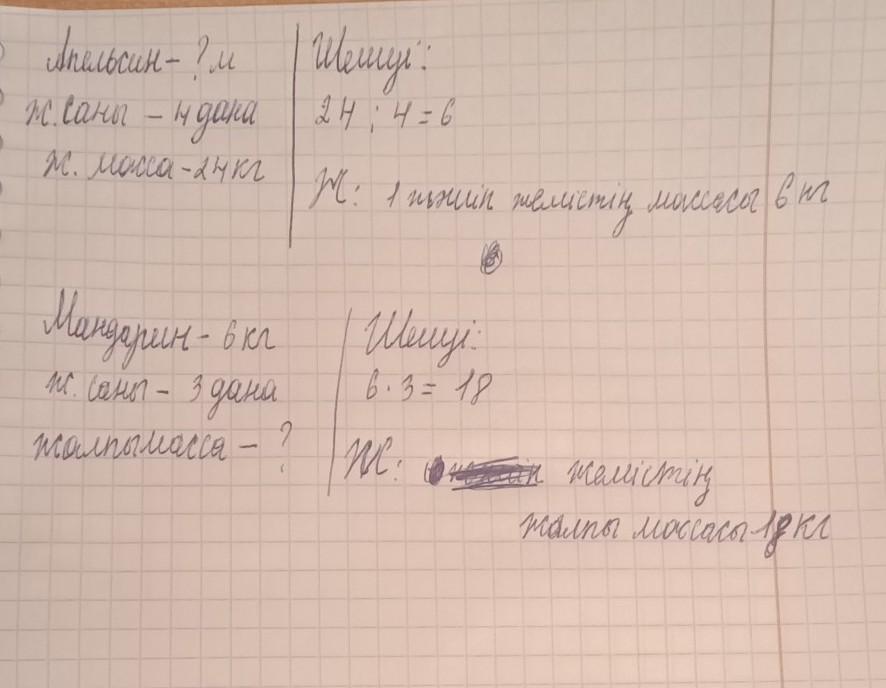 Апельсин - ? м
Ж. саны - 4 дана
Ж. масса - 24 кг
Шешуі:
24 : 4 = 6
Ж: 1 жәшік жемістің массасы 6 кг
Мандарин - 6 кг
Ж. саны - 3 дана
жалпы масса - ?
Шешуі:
6 · 3 = 18
Ж: жемістің
жалпы массасы 18 кг